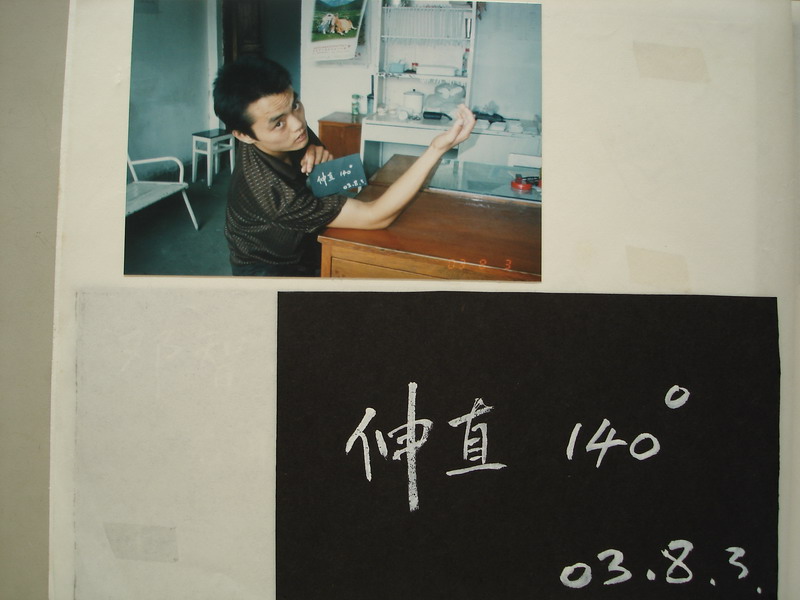 伸直 140°
03.8.3
03 8 3
伸直 140°
03.8.3.